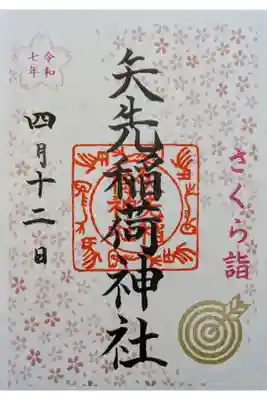 さくら詣
矢先稲荷神社
令和
七年
四月十二日